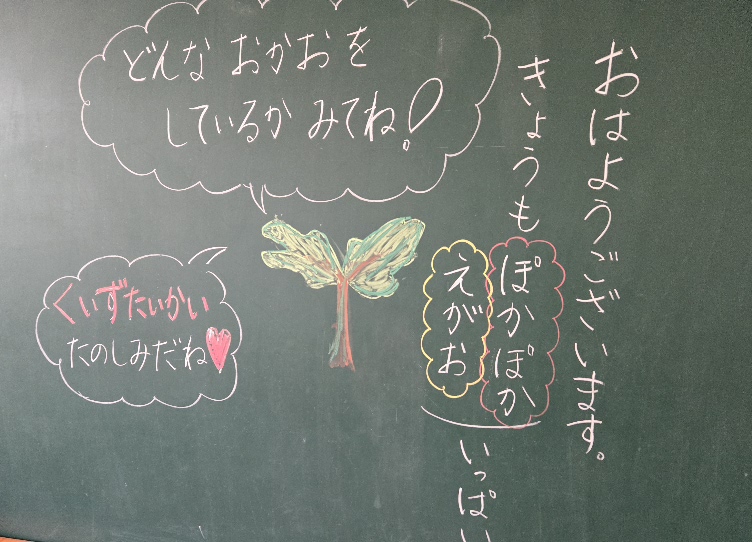 おはようございます。
きょうも
ぽかぽか
えがお
いっぱい
どんな おかおを
しているか みてね!
くいずたいかい
たのしみだね